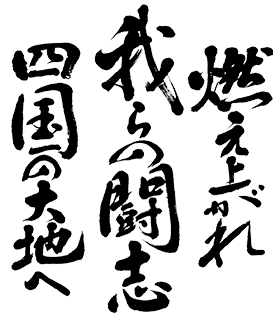 燃え上がれ
我らの闘志
四国の大地へ